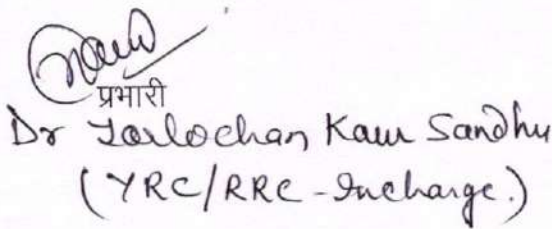 प्रभारी
Dr Tarlochan Kaur Sandhu
(YRC/RRC-Incharge.)